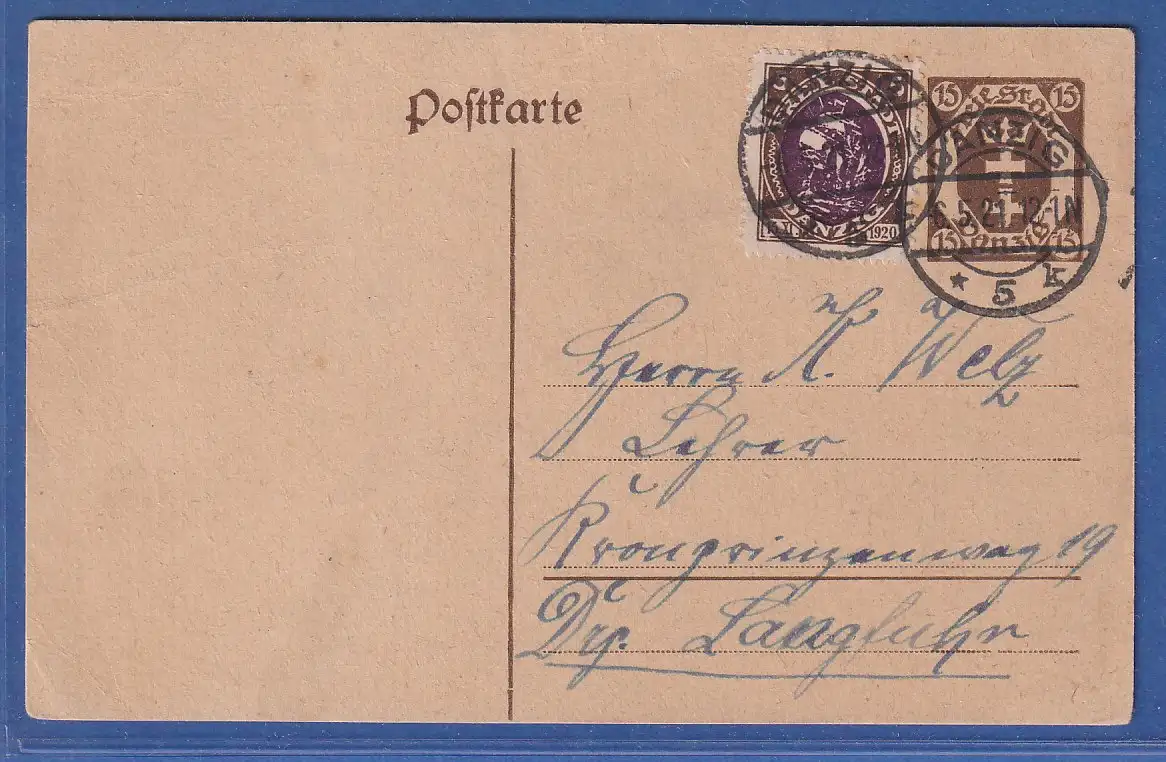 Postkarte
DANZIG
FREIE STADT
DANZIG
15.XI. 1920
15 Freie Stadt 15
15 Danzig 15
DANZIG
6.5.21. 12-1N
* 5 k
Herrn A. Welz
Lehrer
Kronprinzenweg 19
Dzg. Langfuhr